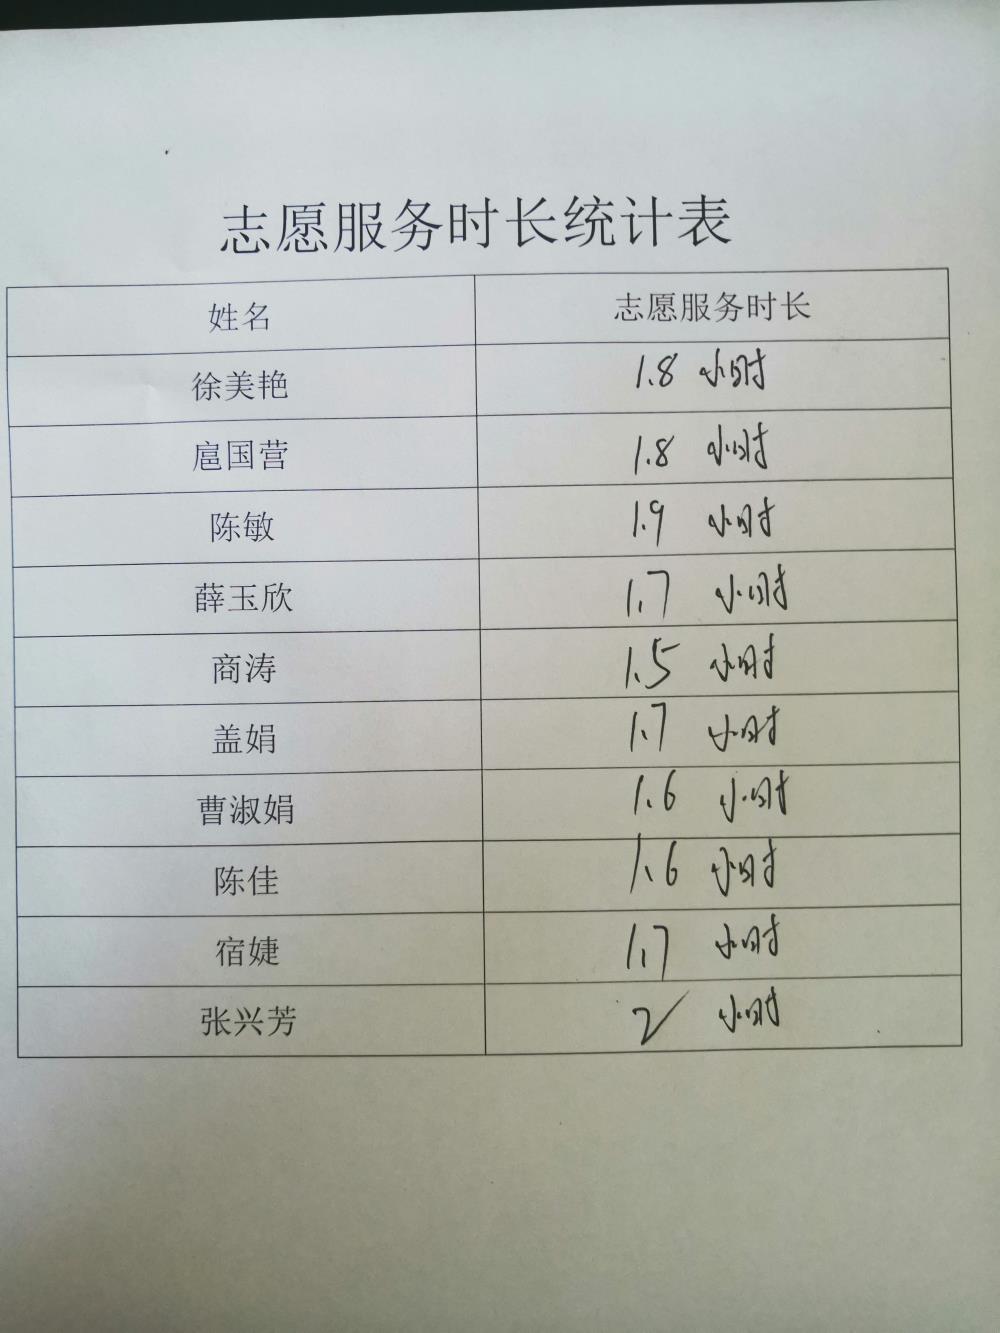 志愿服务时长统计表
姓名 志愿服务时长
徐美艳 1.8 小时
扈国营 1.8 小时
陈敏 1.9 小时
薛玉欣 1.7 小时
商涛 1.5 小时
盖娟 1.7 小时
曹淑娟 1.6 小时
陈佳 1.6 小时
宿婕 1.7 小时
张兴芳 2 小时